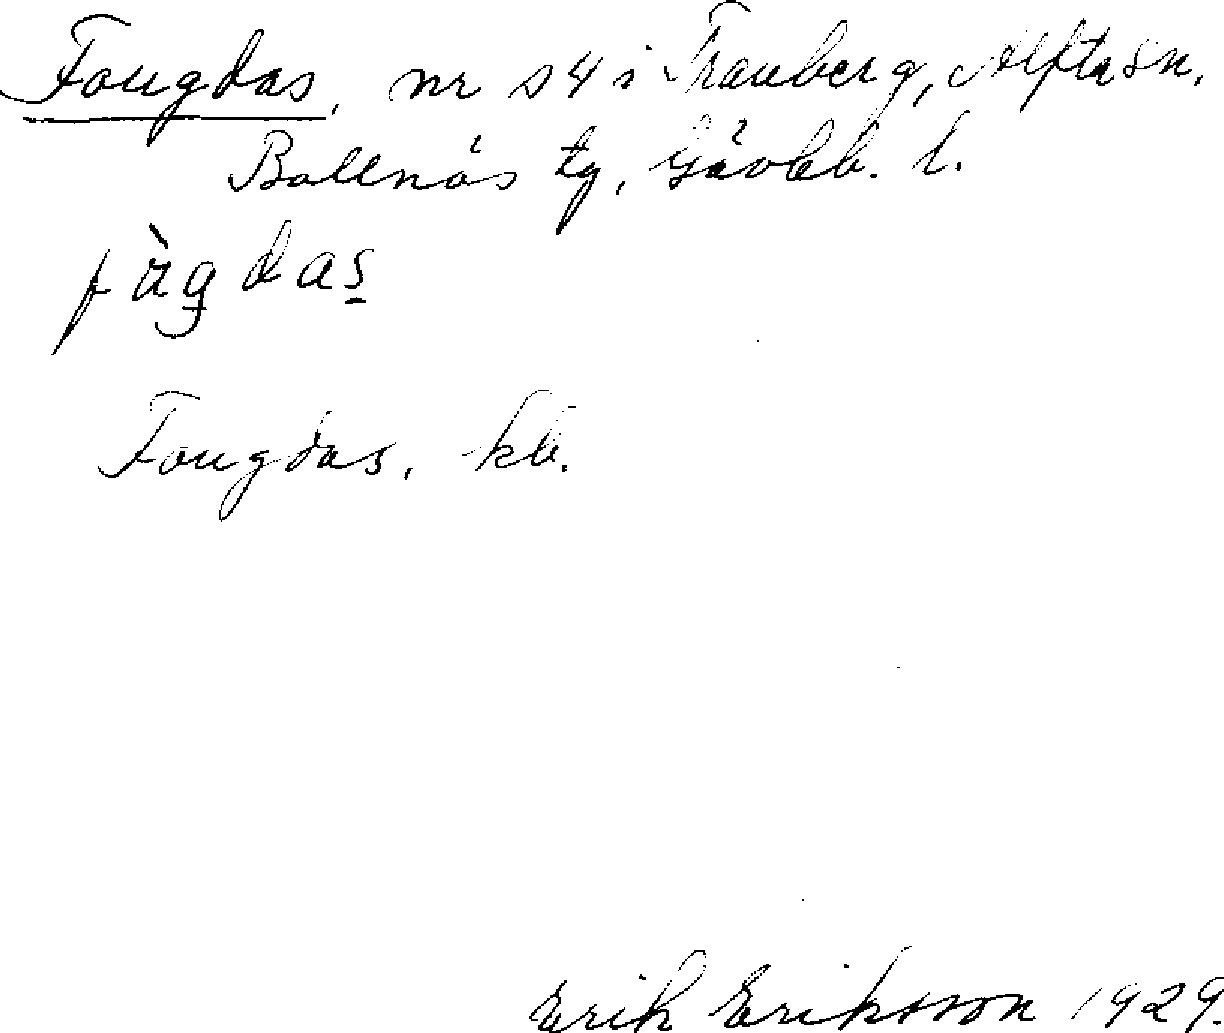 Fougdas, nr s4 i Tranberg, Alfta sn.
Bollnäs tg, Gävleb. l.
fàgdas
Fougdas, kb.
Erik Eriksson 1929.